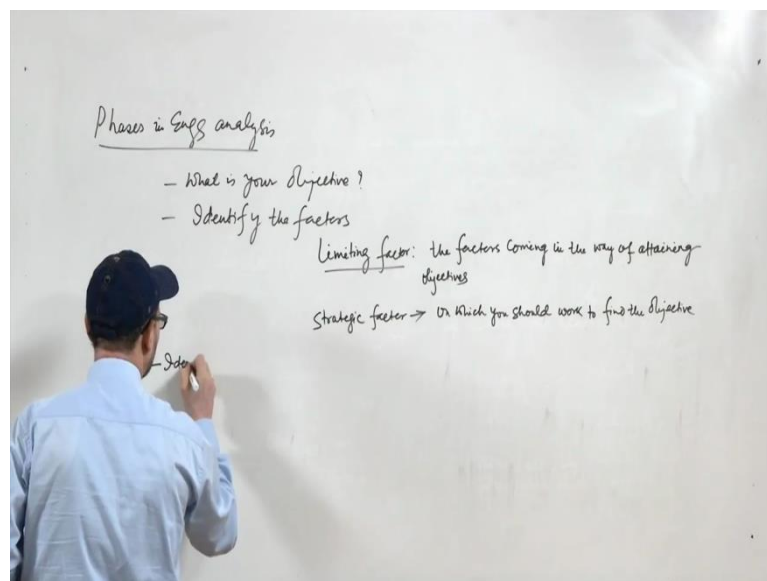 Phases in Engg analysis
- What is your Objective?
- Identify the factors
Limiting factor: the factors coming in the way of attaining
objectives
Strategic factor → on which you should work to find the Objective
- Ide